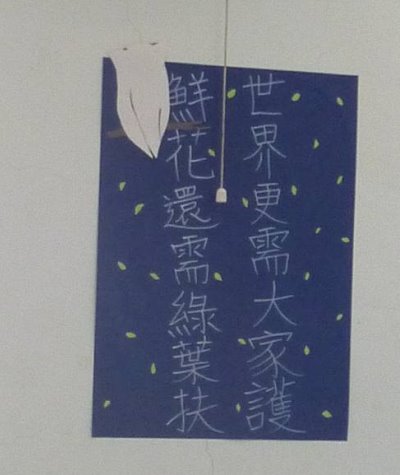 鮮花還需綠葉扶
世界更需大家護